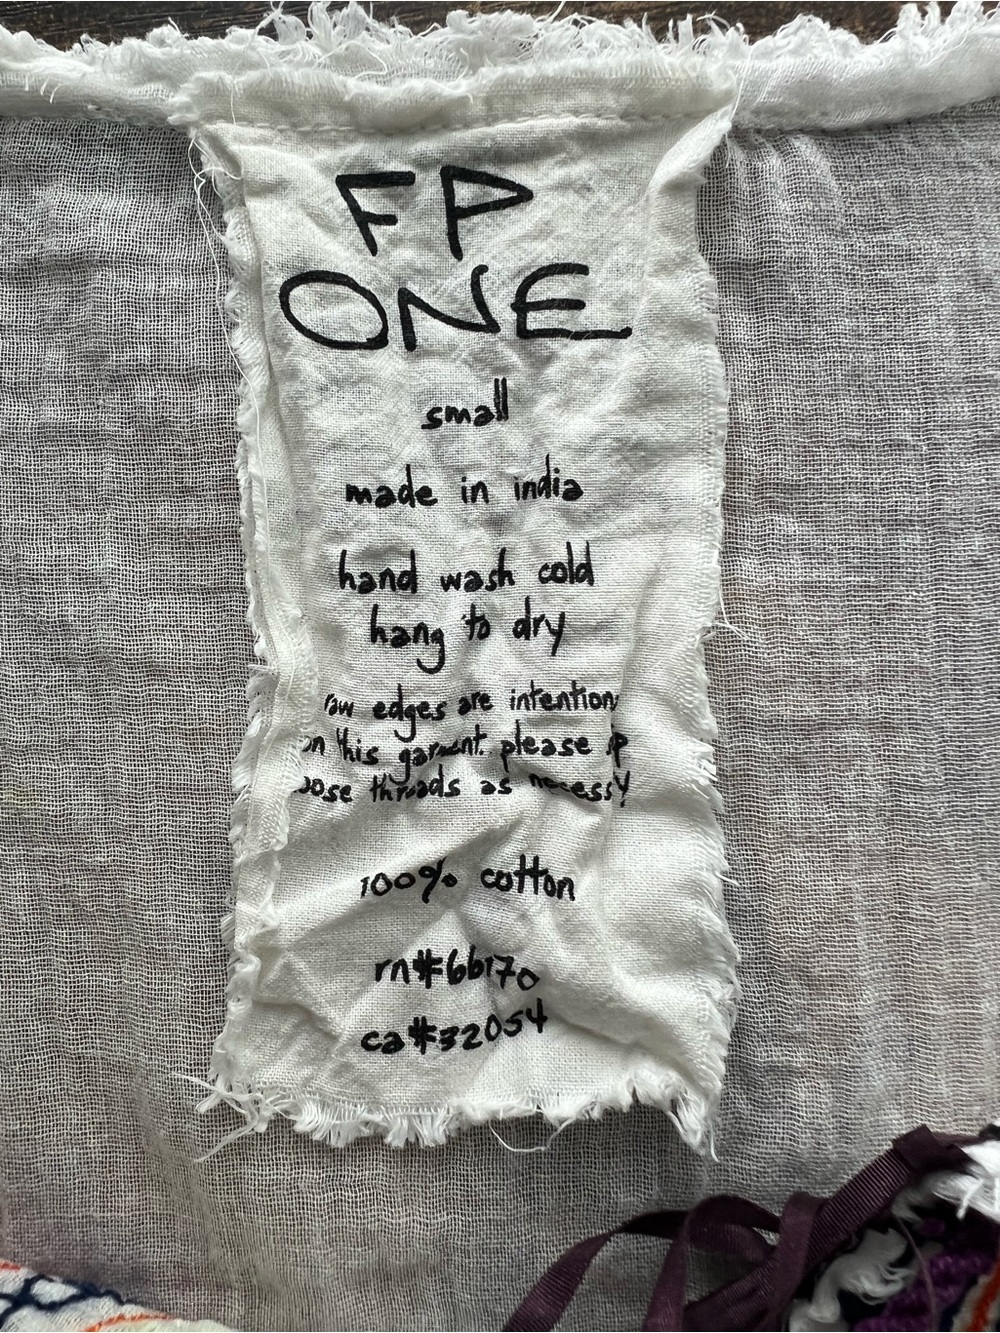 FP
ONE
small
made in india
hand wash cold
hang to dry
raw edges are intention
on this garment. please
threads as
100% cotton
rn#66170
ca#32054